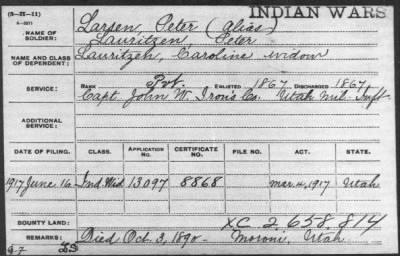 (3-25-11)
6-3371
INDIAN WARS
NAME OF SOLDIER:
Larsen, Peter (alias)
Lauritzen, Peter
NAME AND CLASS OF DEPENDENT:
Lauritzen, Caroline widow
SERVICE:
RANK Pvt. ENLISTED 1867 DISCHARGED 1867
Capt. John W. Iron's Co. Utah Mil. Inft
ADDITIONAL SERVICE:
DATE OF FILING. CLASS. APPLICATION NO. CERTIFICATE NO. FILE NO. ACT. STATE.
1917 June 16 Ind. Wid 13097 8868 Mar. 4, 1917 Utah
BOUNTY LAND:
XC 2,658,814
REMARKS:
Died Oct. 3, 1890- Moroni, Utah